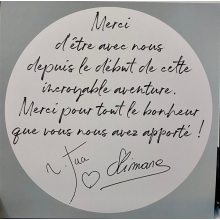 Merci
d'être avec nous
depuis le début de cette
incroyable aventure.
Merci pour tout le bonheur
que vous nous avez apporté !